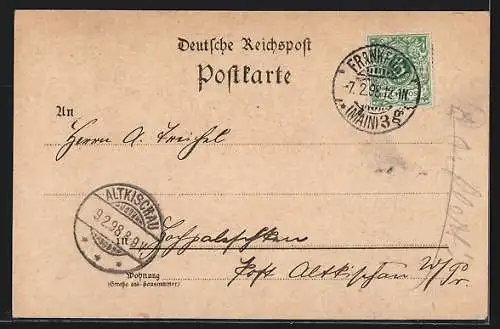 Deutsche Reichspost
Postkarte
FRANKFURT
7.2.98.12-1N.
(MAIN) 3
An
Herrn A. Treichel
ALTKISCHAU
9.2.98.8-9V.
in Hochpaleschken
Post Altkischau W/Pr.
Wohnung
(Straße und Hausnummer)